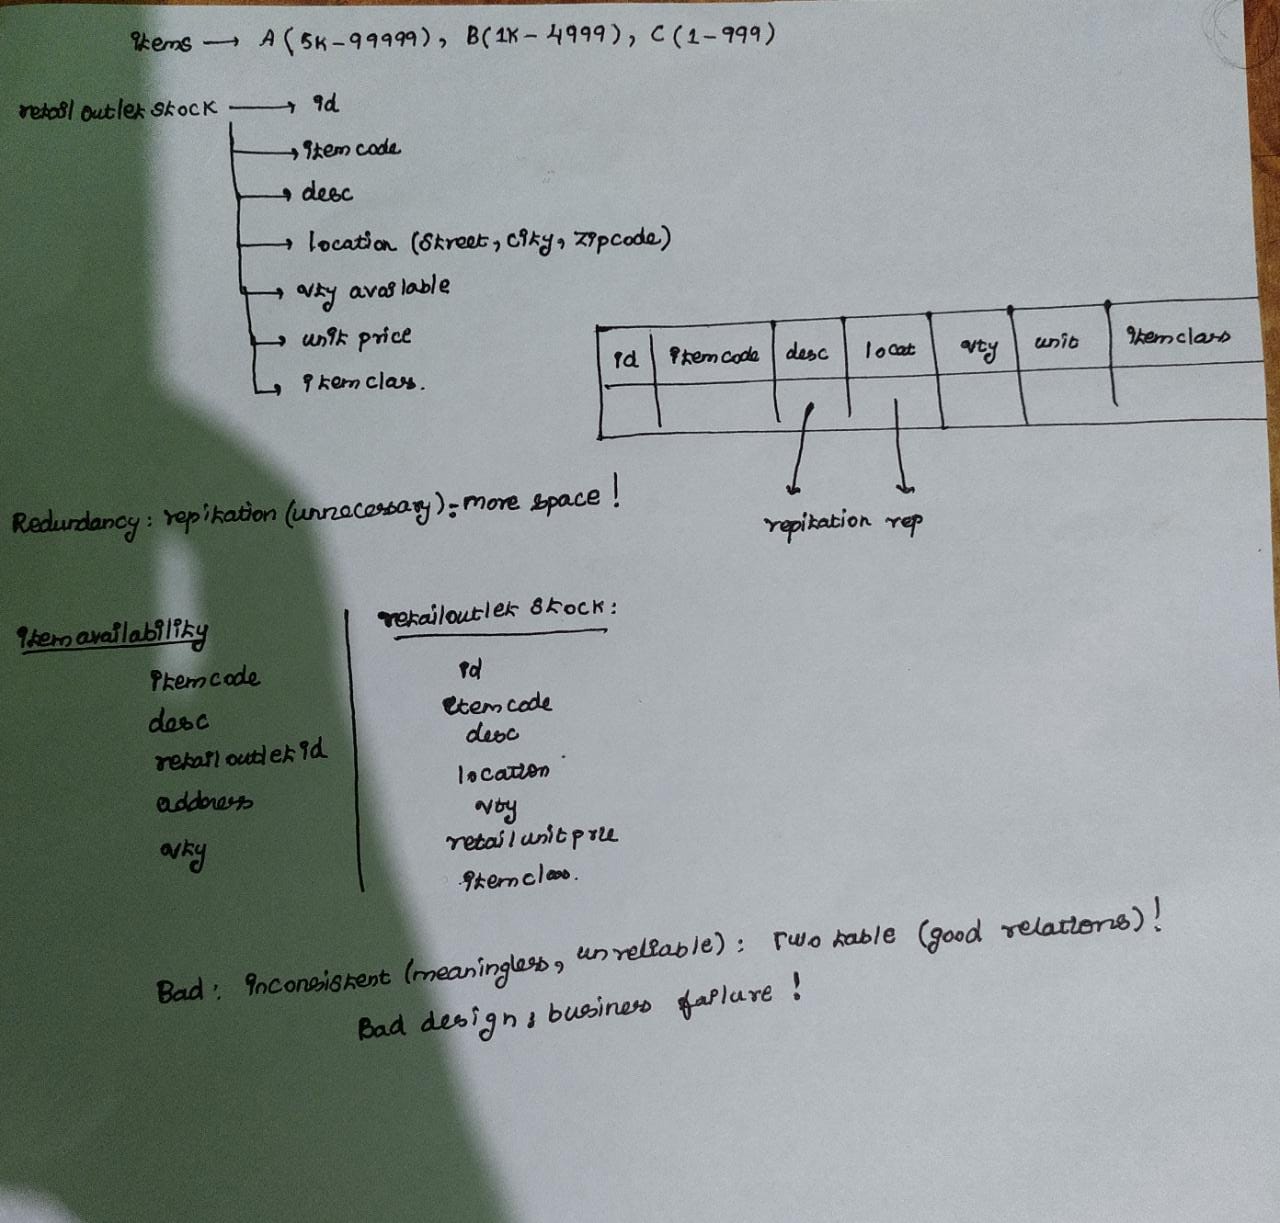 items → A(5K-99999), B(1K-4999), C(1-999)
retail outlet stock → id
→ item code
→ desc
→ location (street, city, zipcode)
→ qty available
→ unit price
→ item class.
id | item code | desc | locat | qty | unit | item class
Redundancy: repitation (unnecessary); more space!
repitation rep
item availability
item code
desc
retail outlet id
address
qty
retailoutlet stock:
id
item code
desc
location
qty
retail unit price
item class.
Bad: inconsistent (meaningless, unreliable): Two table (good relations)!
Bad design; business failure!